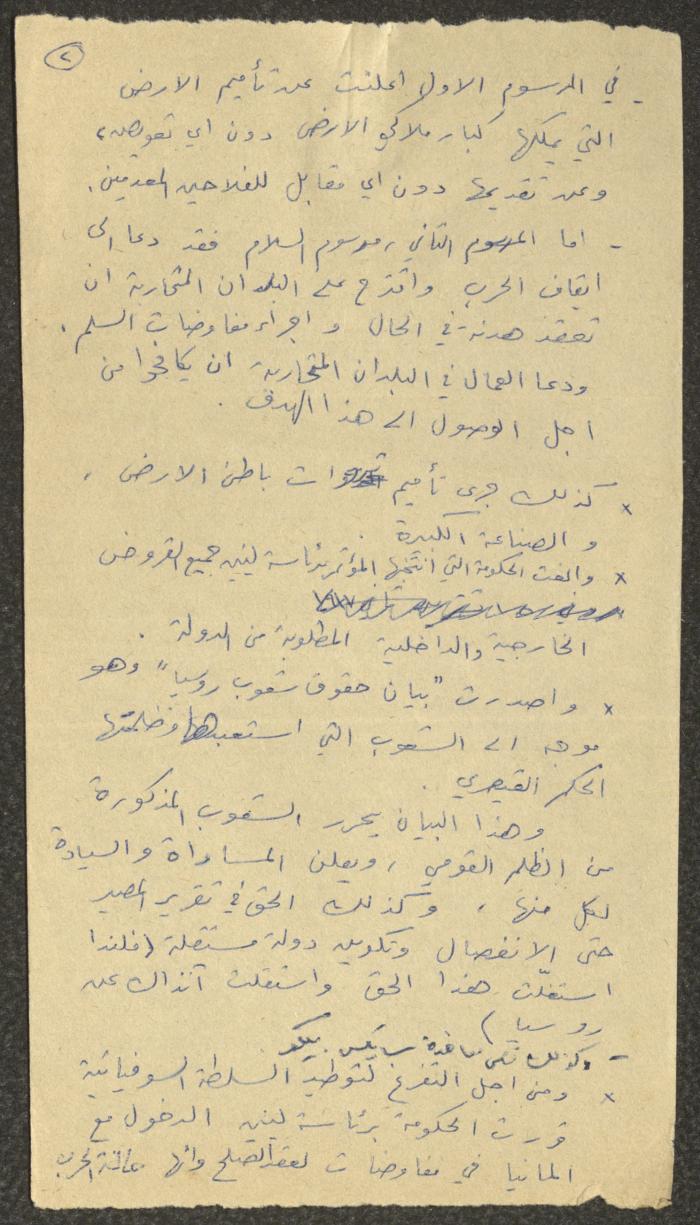 ٢
- في المرسوم الاول اعلنت عن تأميم الارض
التي يملكها كبار ملاكي الارض دون اي تعويض،
وعن تقديمها دون اي مقابل للفلاحين المعدمين.
- اما المرسوم الثاني، مرسوم السلام فقد دعا الى
ايقاف الحرب واقترح على البلدان المتحاربة ان
تعقد هدنة في الحال و اجراء مفاوضات السلم.
ودعا العمال في البلدان المتحاربة ان يكافحوا من
اجل الوصول الى هذا الهدف.
x كذلك جرى تأميم ثروات باطن الارض،
و الصناعة الكبيرة.
x والغت الحكومة التي انتخبها المؤتمر برئاسة لينين جميع القروض
الخارجية والداخلية المطلوبة من الدولة.
x واصدرت "بيان حقوق شعوب روسيا" وهو
موجه الى الشعوب التي استعبدها وظلمها
الحكم القيصري.
وهذا البيان يحرر الشعوب المذكورة
من الظلم القومي، ويعلن المساواة والسيادة
لكل منها، وكذلك الحق في تقرير المصير
حتى الانفصال وتكوين دولة مستقلة (فنلندا
استغلّت هذا الحق واستقلت آنذاك عن
روسيا)
- وكذلك سايكس بيكو
x ومن اجل التفرغ لتوطيد السلطة السوفياتية
قررت الحكومة برئاسة لينين الدخول مع
المانيا في مفاوضات لعقد الصلح وانهاء حالة الحرب